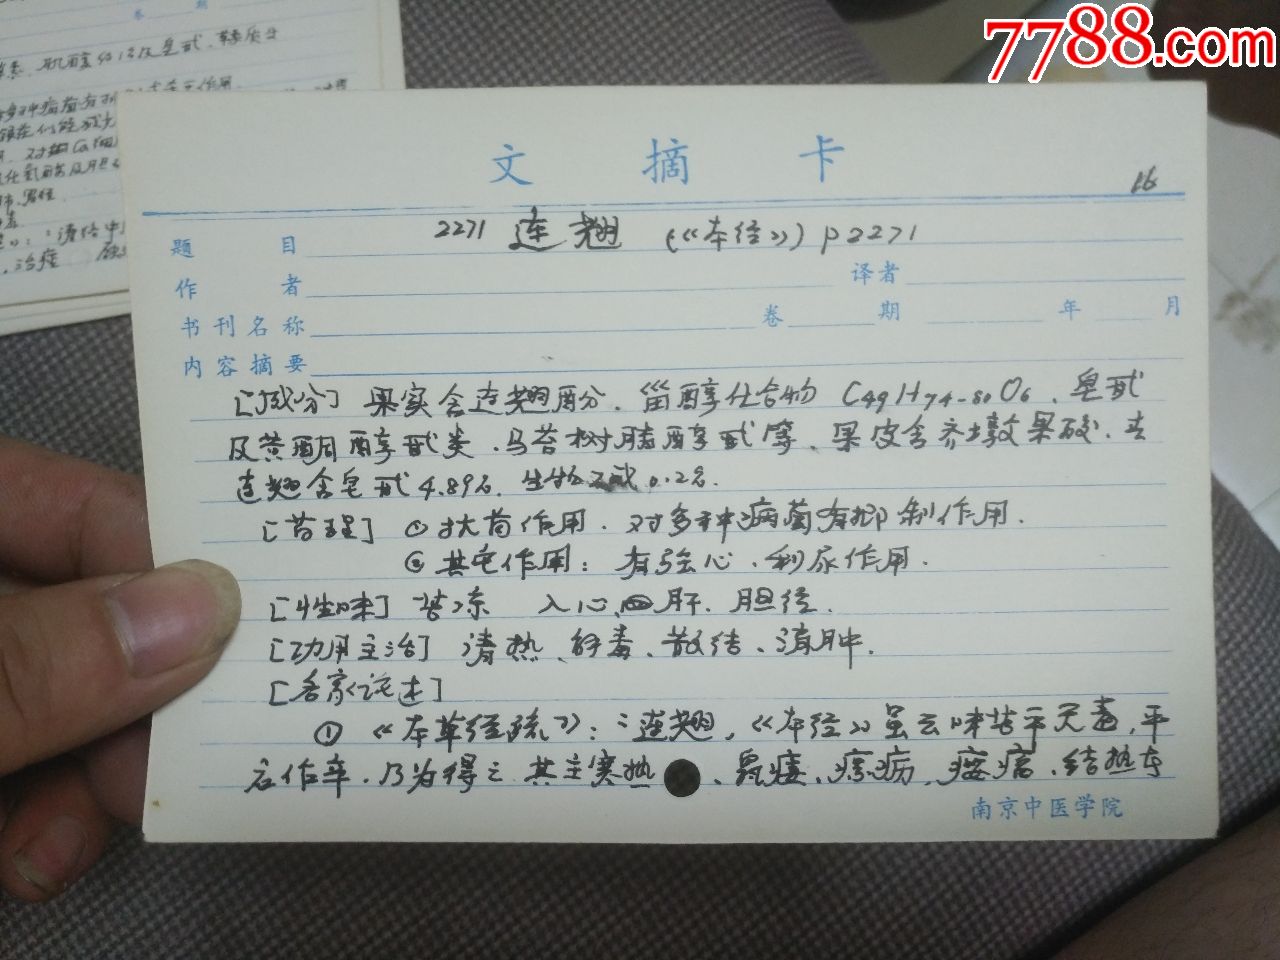 7788.com
文摘卡
16
题目 2271 连翘 (《本经》) P2271
作者 译者
书刊名称 卷 期 年 月
内容摘要
[成分] 果实含连翘酚、甾醇化合物 C49H74-80O6、皂甙
及黄酮醇甙类、马苔树脂醇甙等、果皮含齐墩果酸、
连翘含皂甙4.89%、生物碱0.2%.
[药理] ①抗菌作用、对多种病菌有抑制作用.
②其它作用: 有强心、利尿作用.
[性味] 苦凉 入心、肝、胆经.
[功用主治] 清热、解毒、散结、消肿.
[各家论述]
①《本草经疏》: "连翘,《本经》虽云味苦平无毒,平
应作辛,乃为得之 其主寒热、鼠瘘、瘰疬、瘿瘤、结热
南京中医学院
卷 期
作用
治疟